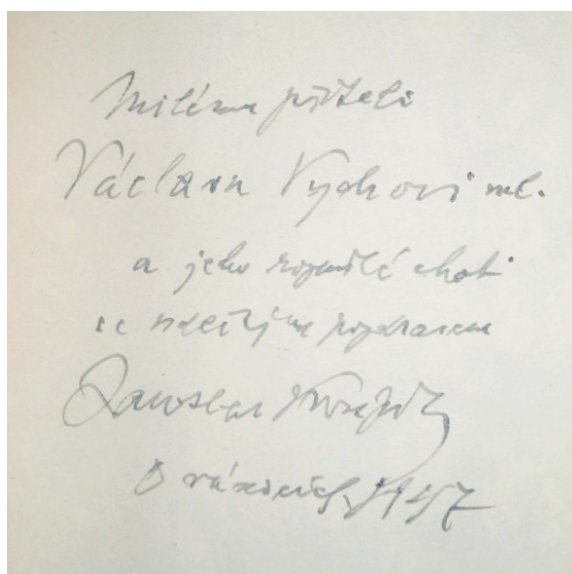 Milému příteli
Václavu Vydrovi ml.
a jeho rozmilé choti
se srdečným pozdravem
Jaroslav Kvapil
O vánocích 1947